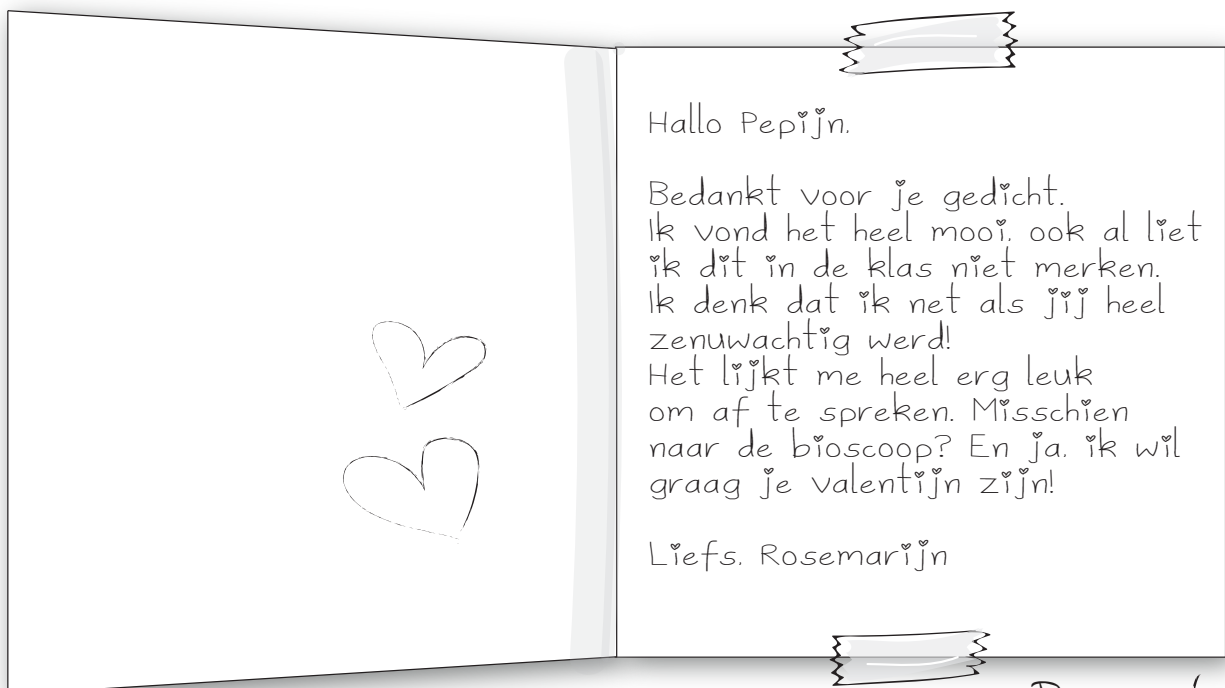 Hallo Pepijn,
Bedankt voor je gedicht.
Ik vond het heel mooi, ook al liet
ik dit in de klas niet merken.
Ik denk dat ik net als jij heel
zenuwachtig werd!
Het lijkt me heel erg leuk
om af te spreken. Misschien
naar de bioscoop? En ja, ik wil
graag je valentijn zijn!
Liefs, Rosemarijn